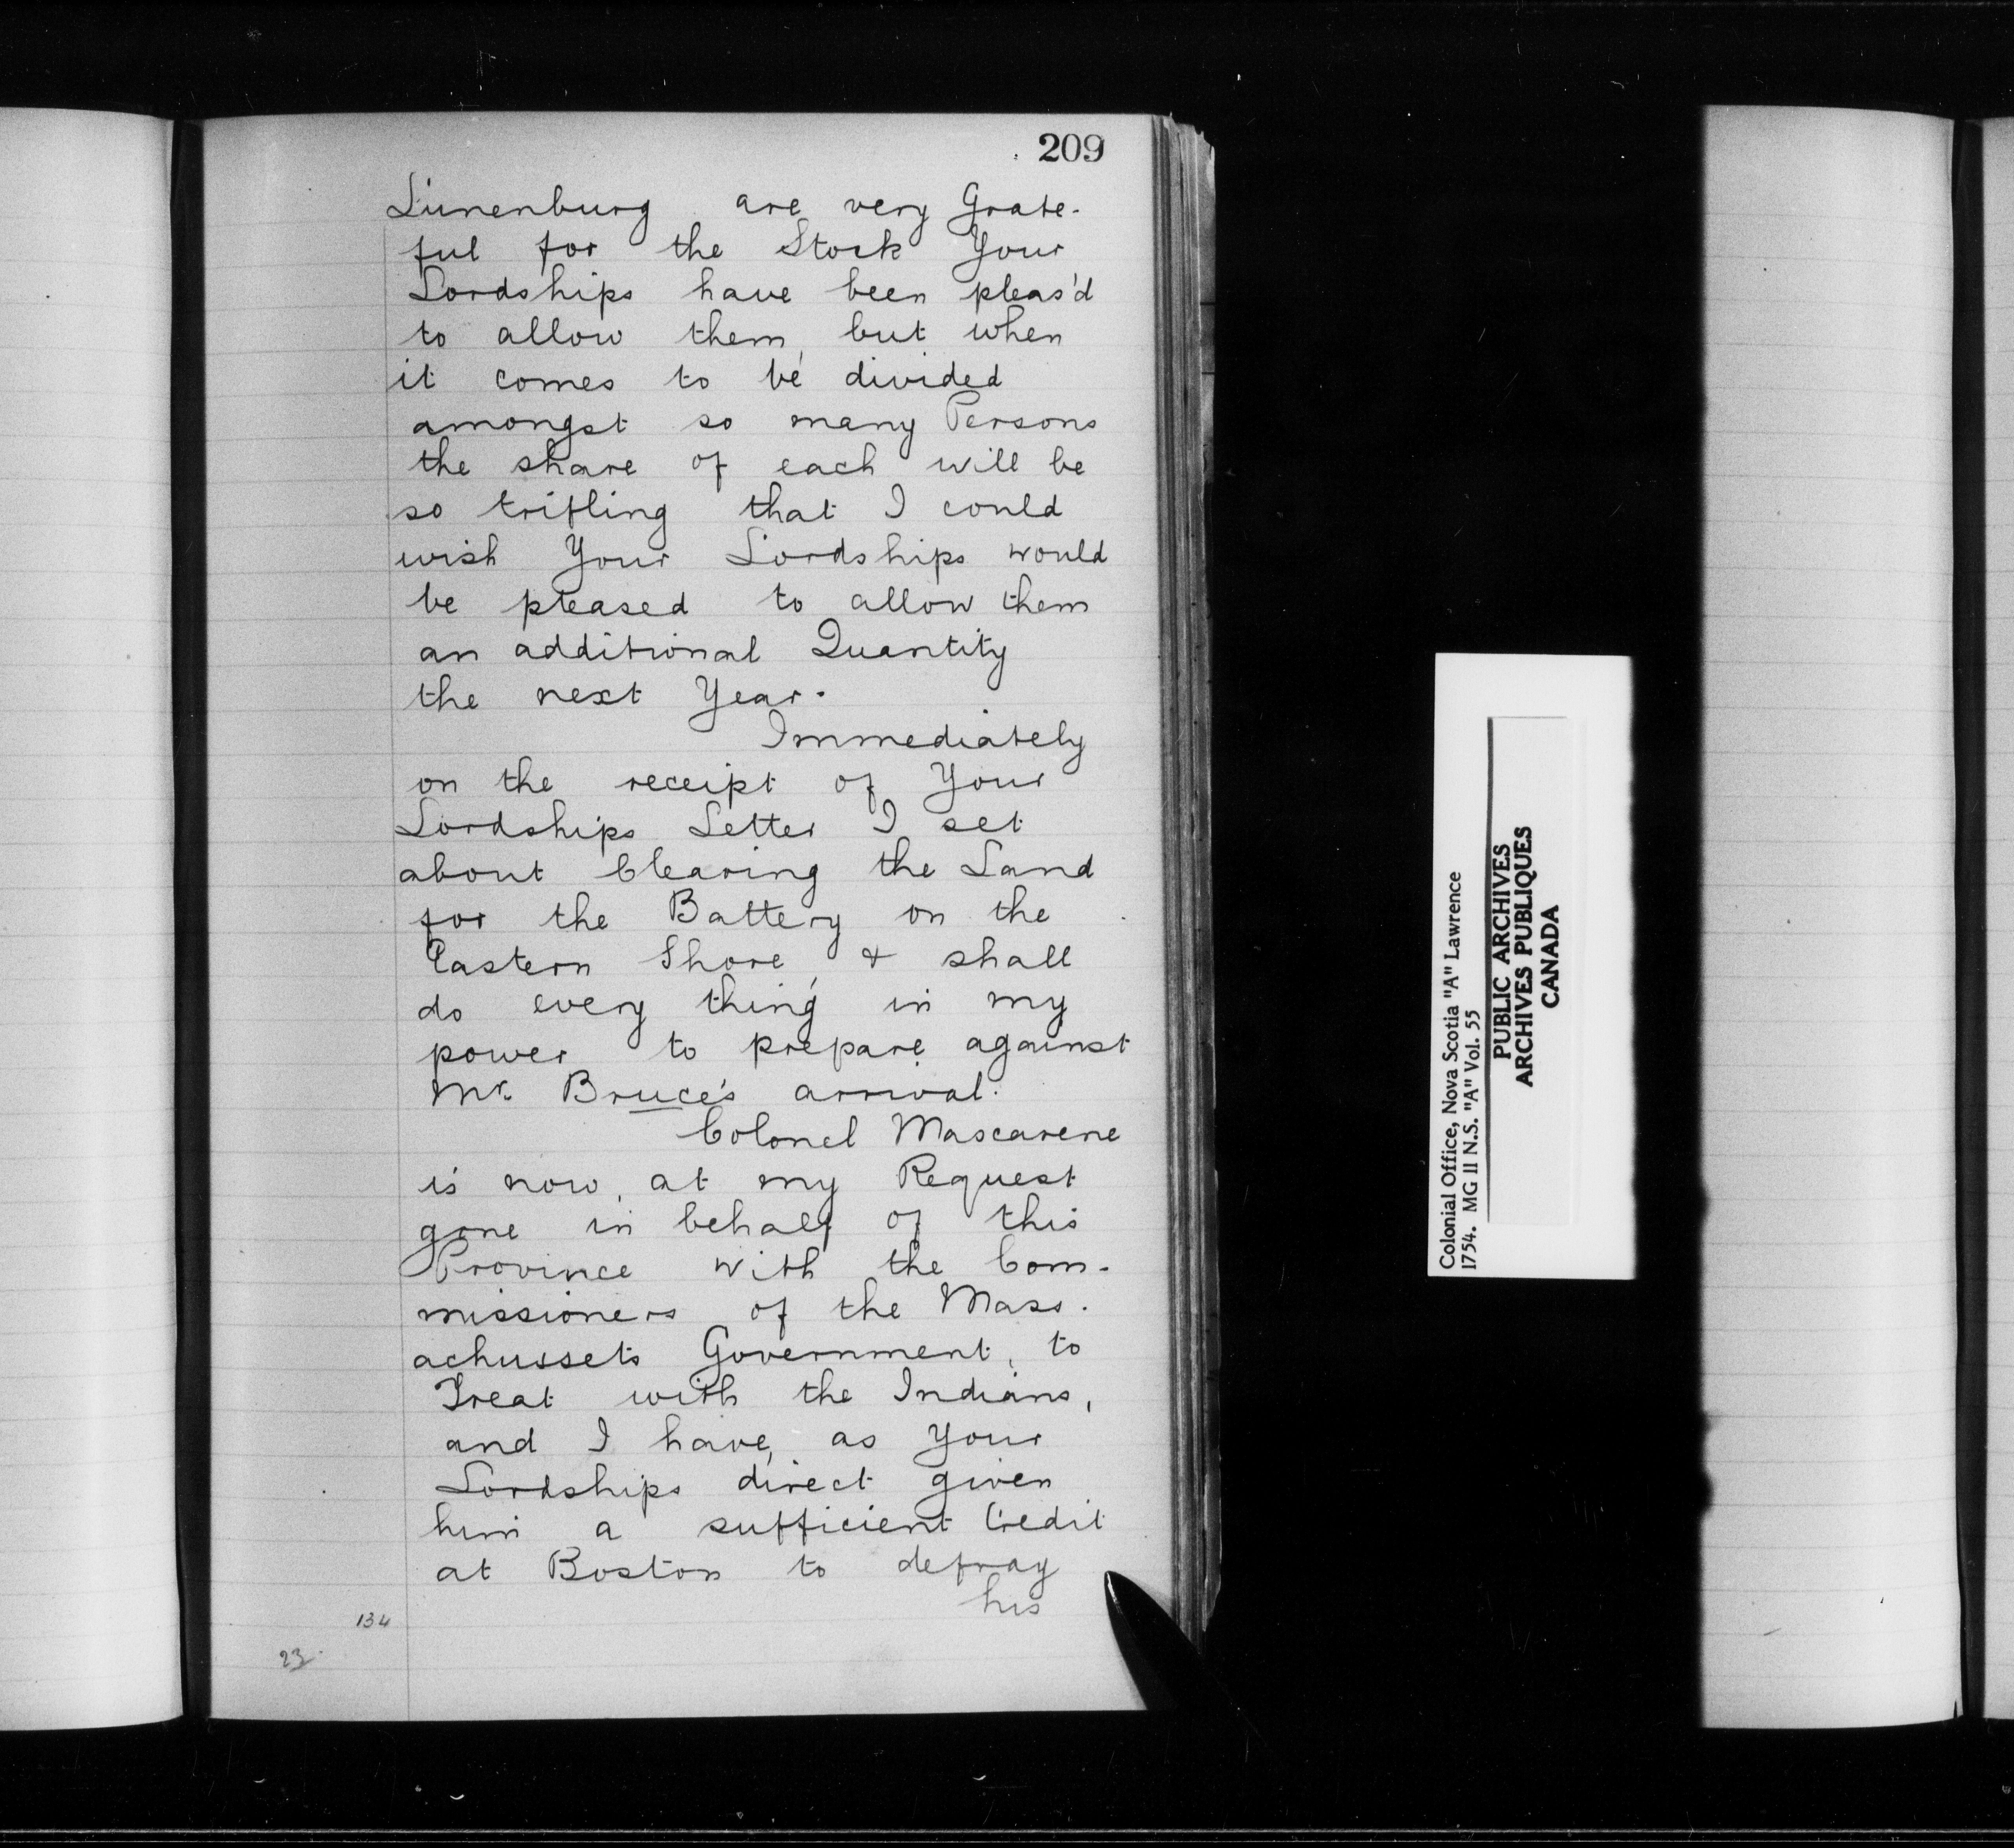 209
Lunenburg are very Grate-
ful for the Stock Your
Lordships have been pleas'd
to allow them, but when
it comes to be divided
amongst so many Persons
the share of each will be
so trifling that I could
wish Your Lordships would
be pleased to allow them
an additional Quantity
the next Year.
Immediately
on the receipt of Your
Lordships Letter I set
about Clearing the Land
for the Battery on the
Eastern Shore, & shall
do every thing in my
power to prepare against
Mr. Bruce's arrival.
Colonel Mascarene
is now, at my Request
gone in behalf of this
Province with the Com-
missioners of the Mass-
achussets Government, to
Treat with the Indians,
and I have, as Your
Lordships direct given
him a sufficient Credit
at Boston to defray
his
134
23
Colonial Office, Nova Scotia "A" Lawrence
1754. MG 11 N.S. "A" Vol. 55
PUBLIC ARCHIVES
ARCHIVES PUBLIQUES
CANADA